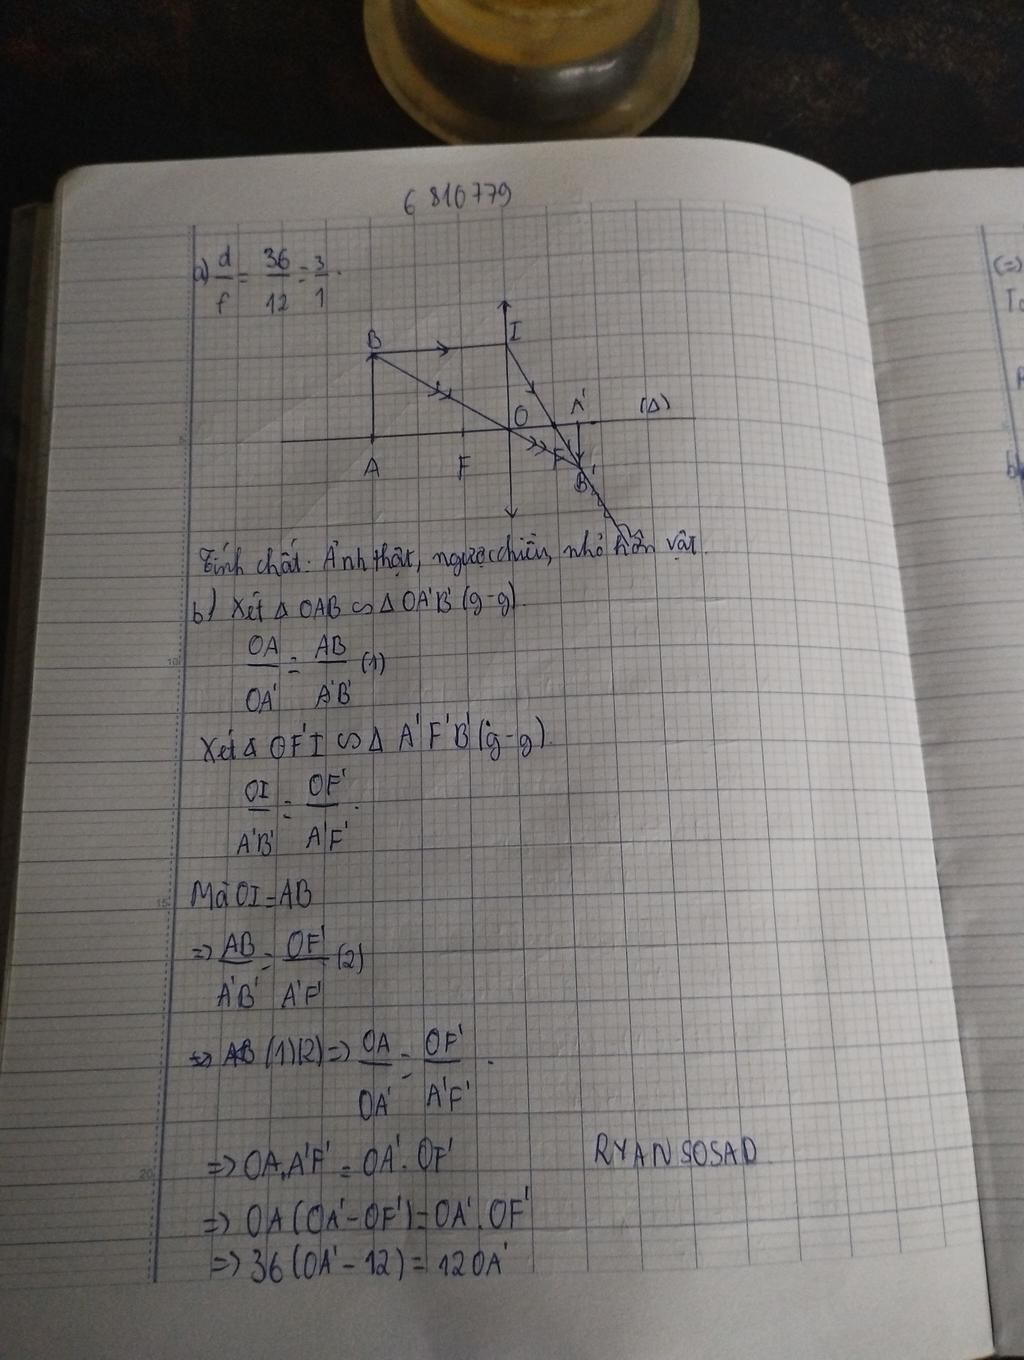 6 810779
a) d/f = 36/12 = 3/1.
B I
O A' (Δ)
A F F' B'
Tính chất: Ảnh thật, ngược chiều, nhỏ hơn vật.
b) Xét Δ OAB ∽ Δ OA'B' (g-g)
OA/OA' = AB/A'B' (1)
Xét Δ OF'I ∽ Δ A'F'B' (g-g).
OI/A'B' = OF'/A'F'.
Mà OI = AB
=> AB/A'B' = OF'/A'F' (2)
(1)(2) => OA/OA' = OF'/A'F'.
=> OA.A'F' = OA'.OF'
RYANSOSAD
=> OA(OA' - OF') = OA'.OF'
=> 36(OA' - 12) = 12OA'
10
15
20
(=)